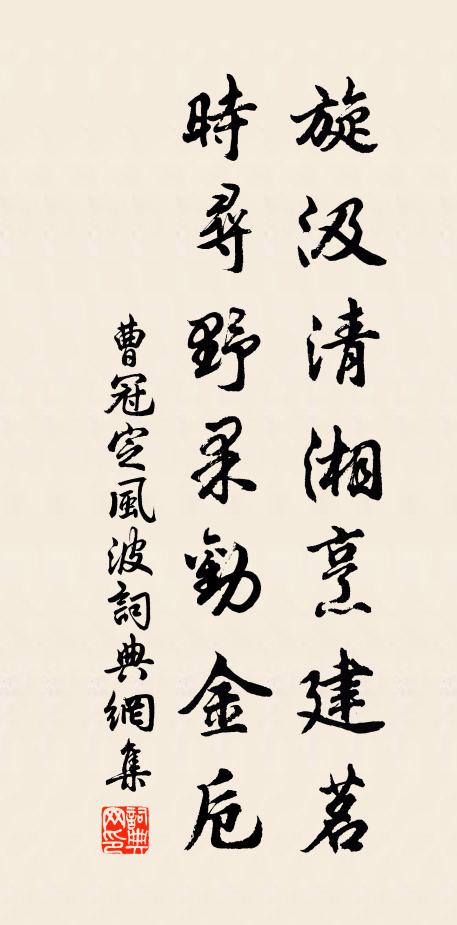 旋汲清湘烹建茗
時尋野果勸金卮
曹冠定風波詞典網集
詞典網印